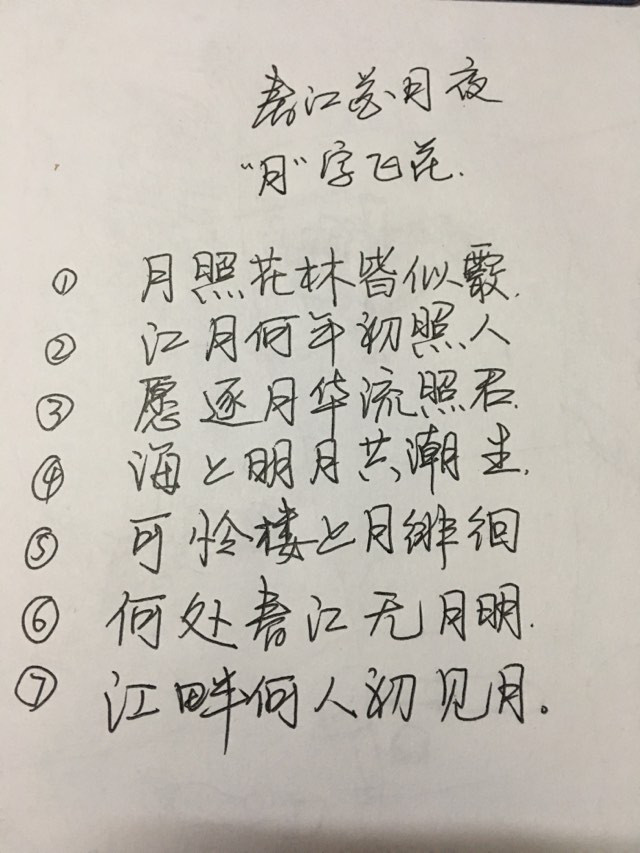 春江花月夜
“月”字飞花.
① 月照花林皆似霰.
② 江月何年初照人
③ 愿逐月华流照君.
④ 海上明月共潮生.
⑤ 可怜楼上月徘徊
⑥ 何处春江无月明.
⑦ 江畔何人初见月。